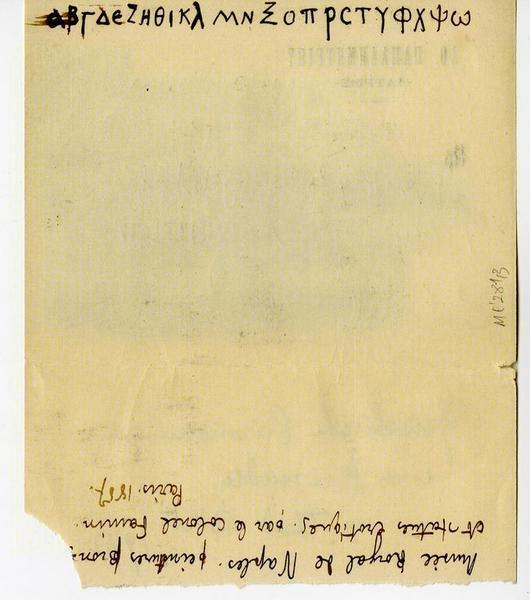 αΒΓΔεΖΗΘΙΚλ ΜΝΞΟΠΡϹΤΥΦΧΨω
Musée Royal de Naples. peintures bronz
et statues érotiques. par le colonel Famin.
Paris. 1857.